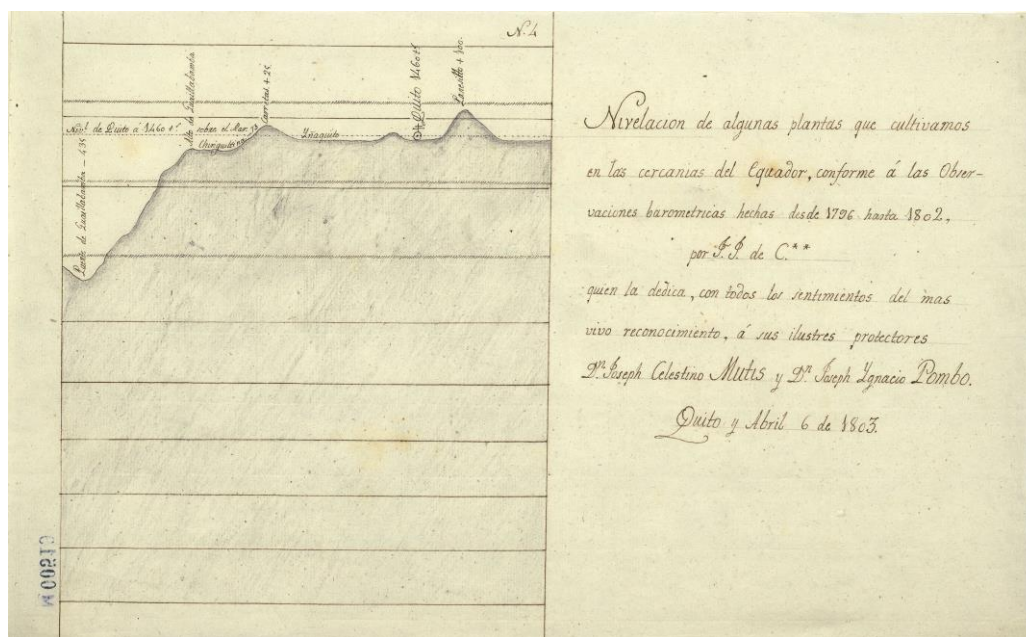 N. 4
Puente de Guaillabamba - 439
Alto de Guaillabamba
Carretas + 26
Quito 1460 tˢ
Panesillo + 100
Nivˡ de Quito á 1460 tˢ sobre el Mar
Yñaquito
Nivelacion de algunas plantas que cultivamos
en las cercanias del Equador, conforme á las Obser-
vaciones barometricas hechas desde 1796 hasta 1802,
por F. J. de C.**
quien la dedica, con todos los sentimientos del mas
vivo reconocimiento, á sus ilustres protectores
Dⁿ Joseph Celestino Mutis y Dⁿ Joseph Ygnacio Pombo.
Quito y Abril 6 de 1803.